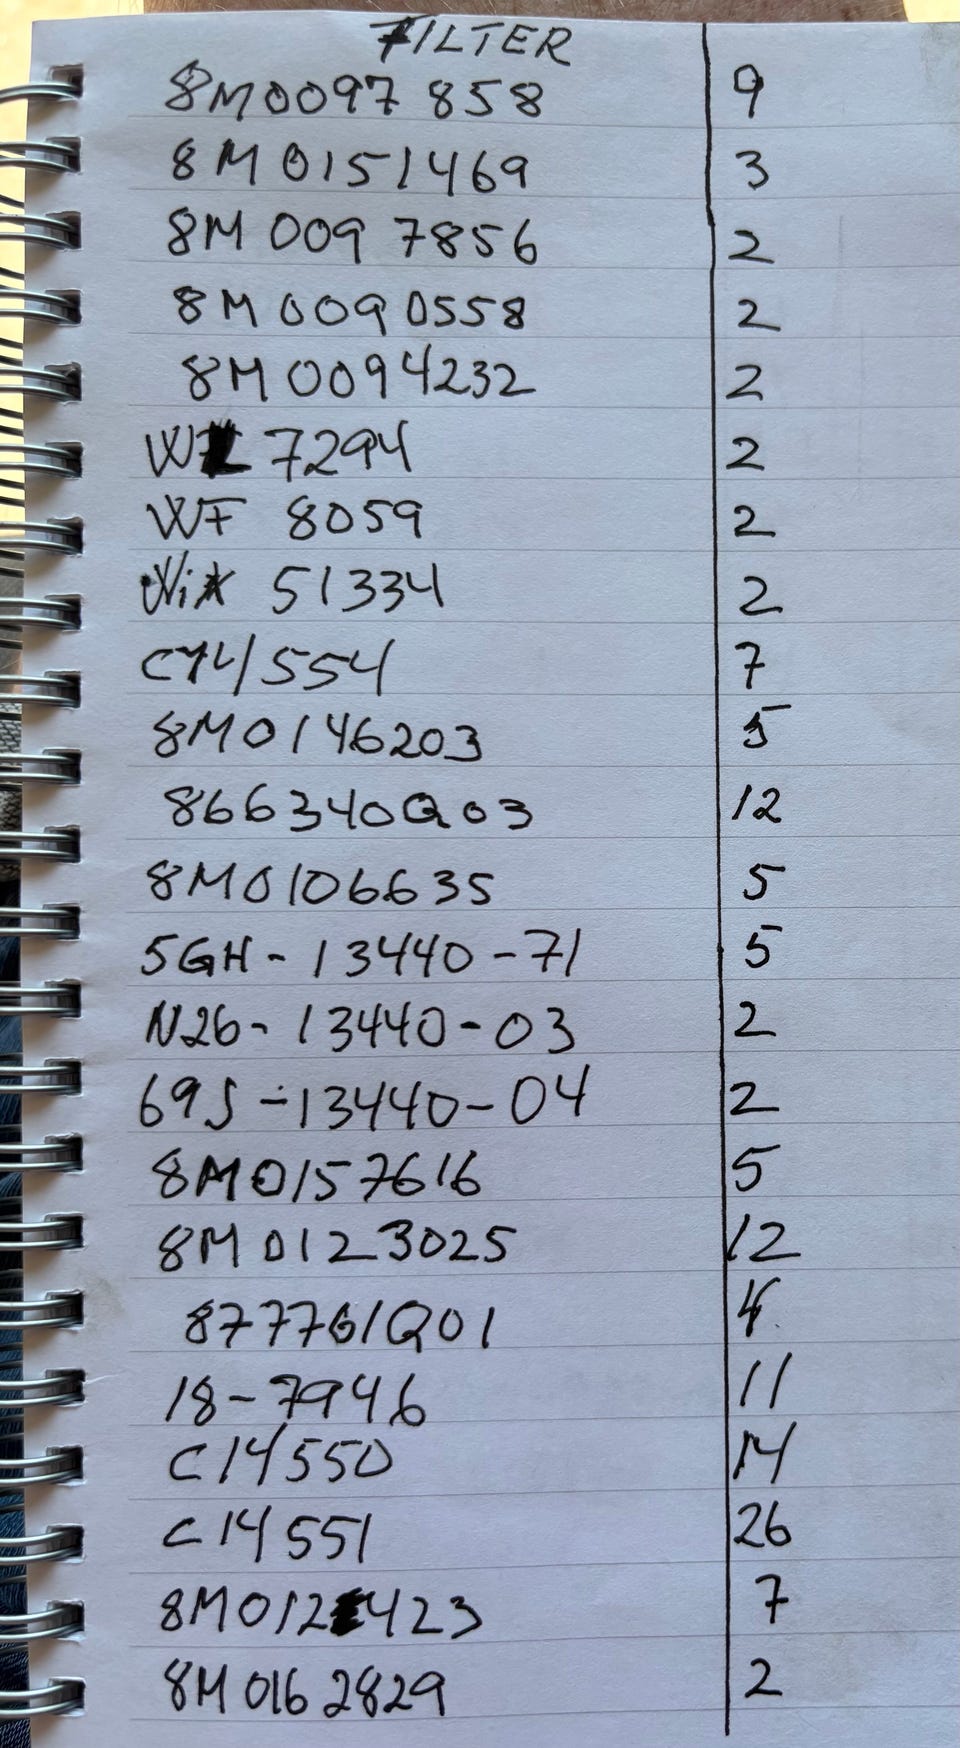 FILTER
8M0097858 9
8M0151469 3
8M0097856 2
8M0090558 2
8M0094232 2
7294 2
WF 8059 2
Wix 51334 2
C14554 7
8M0146203 5
866340Q03 12
8M0106635 5
5GH-13440-71 5
N26-13440-03 2
69J-13440-04 2
8M0157616 5
8M0123025 12
877761Q01 4
18-7946 11
C14550 14
C14551 26
8M012 423 7
8M0162829 2